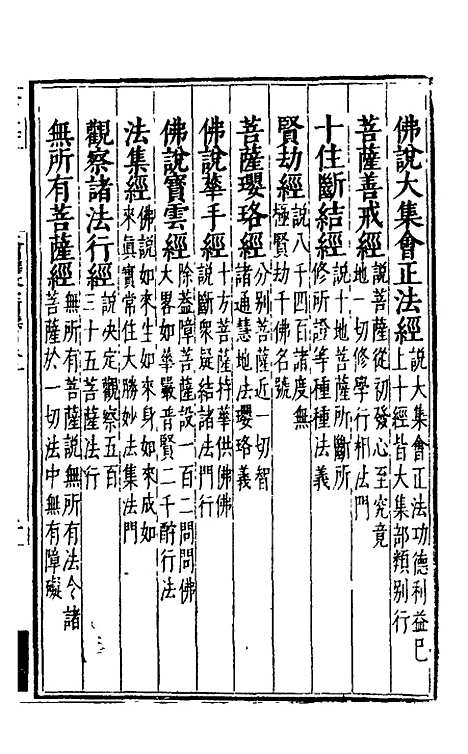 佛說大集會正法經說大集會正法功德利益已上十經皆大集部類別行
菩薩善戒經說菩薩從初發心至究竟地一切修學行相法門
十住斷結經說十地菩薩所斷所修所證等種種法義
賢劫經說八千四百諸度無極賢劫千佛名號
菩薩瓔珞經分別菩薩近一切智諸通慧地法瓔珞義
佛說華手經十方菩薩持華供佛佛說斷衆疑結諸法門行
佛說寶雲經除蓋障菩薩設一百二問問佛大畧如華嚴普賢二千酧行法
法集經佛說如來生如來身如來成如來真實常住大勝妙法集法門
觀察諸法行經說決定觀察五百三十五菩薩法行
無所有菩薩經無所有菩薩說無所有法令諸菩薩於一切法中無有障礙